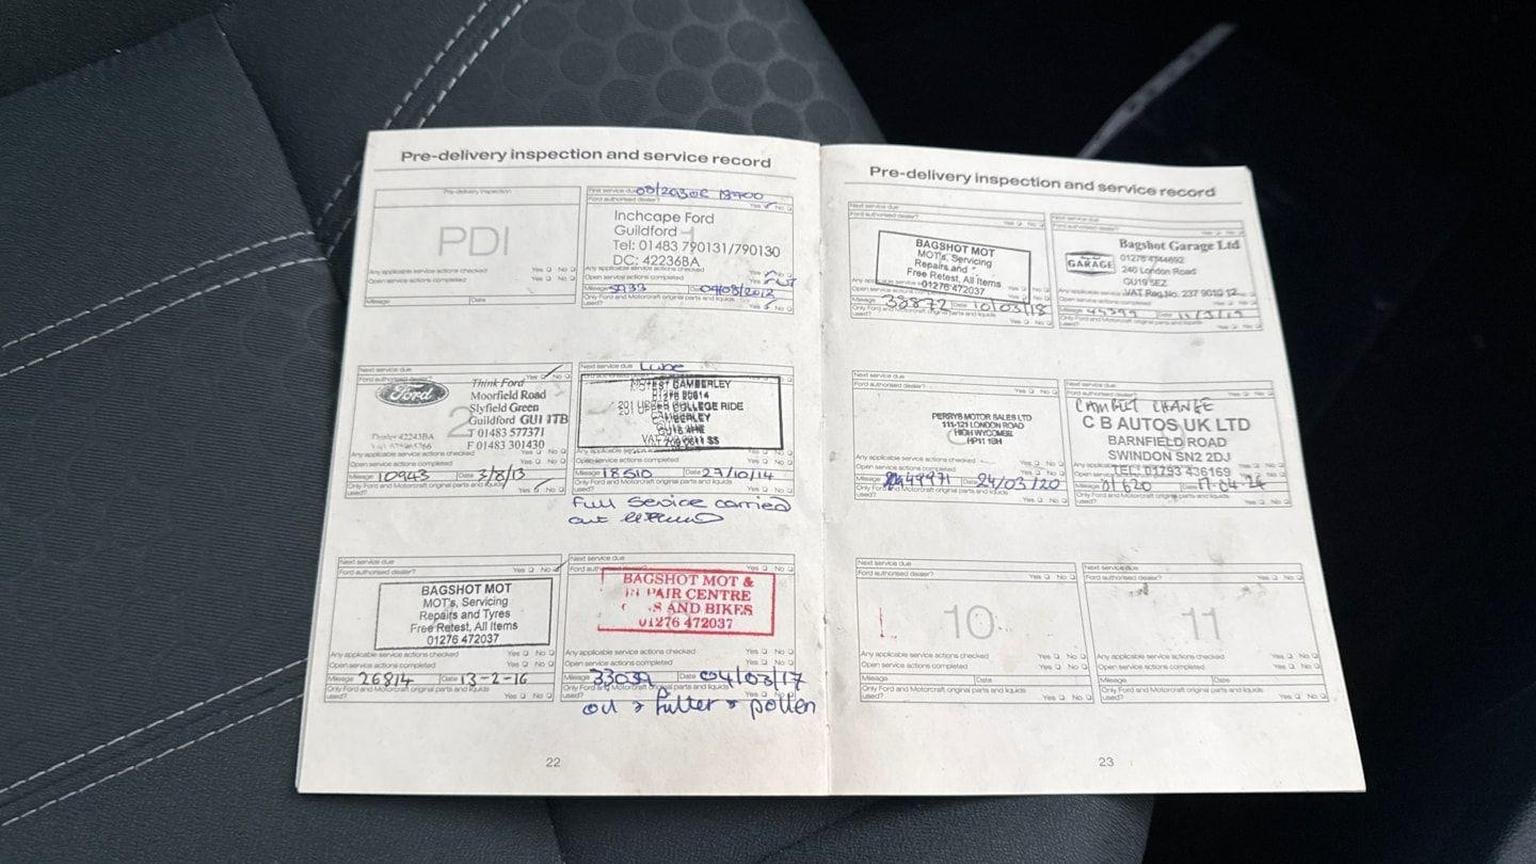 Pre-delivery inspection and service record
Pre-delivery inspection
PDI
Any applicable service actions checked Yes No
Open service actions completed Yes No
Mileage Date
First service due
Ford authorised dealer? Yes No
Inchcape Ford
Guildford 1
Tel: 01483 790131/790130
DC: 42236BA
Any applicable service actions checked
Open service actions completed Yes
Mileage
Only Ford and Motorcraft original parts and liquids
used? Yes No
Next service due
Ford authorised dealer? Yes No
Ford
Think Ford
Moorfield Road
Slyfield Green
2 Guildford GU1 1TB
Dealer 42243BA T 01483 577371
F 01483 301430
Any applicable service actions checked Yes No
Open service actions completed Yes No
Mileage 10943 Date 3/8/13
Only Ford and Motorcraft original parts and liquids
used? Yes No
Next service due Lube
COLLEGE RIDE
Any applicable service actions checked
Open service actions completed
Mileage 18510 Date 27/10/14
Only Ford and Motorcraft original parts and liquids
used? Yes No
Full Service carried
out
Next service due
Ford authorised dealer? Yes No
BAGSHOT MOT
MOT's, Servicing
Repairs and Tyres
Free Retest, All Items
01276 472037
Any applicable service actions checked Yes No
Open service actions completed Yes No
Mileage 26814 Date 13-2-16
Only Ford and Motorcraft original parts and liquids
used? Yes No
Next service due
Ford authorised dealer? Yes No
BAGSHOT MOT &
REPAIR CENTRE
AND BIKES
01276 472037
Any applicable service actions checked Yes No
Open service actions completed Yes No
Mileage 33039 Date 04/03/17
Only Ford and Motorcraft original parts and liquids
used? Yes No
oil & filter & pollen
22
Pre-delivery inspection and service record
Next service due
Ford authorised dealer? Yes No
BAGSHOT MOT
MOT's, Servicing
Repairs and
Free Retest, All Items
01276 472037
Open service actions completed
Mileage 38872 Date 10/03/18
Only Ford and Motorcraft original parts and liquids
used? Yes No
Next service due
Ford authorised dealer?
Bagshot Garage Ltd
GARAGE
240 London Road
GU19 5EZ
VAT Reg.No. 237 9010 12
Open service actions completed
Mileage Date 11/3/19
Only Ford and Motorcraft original parts and liquids
used? Yes No
Next service due
Ford authorised dealer? Yes No
PERRYS MOTOR SALES LTD
111-121 LONDON ROAD
HIGH WYCOMBE
HP11 1BH
Any applicable service actions checked Yes No
Open service actions completed Yes No
Mileage 49971 Date 24/03/20
Only Ford and Motorcraft original parts and liquids
used? Yes No
Next service due
CAMBELT CHANGE
C B AUTOS UK LTD
BARNFIELD ROAD
SWINDON SN2 2DJ
TEL: 01793 436169
Open service actions completed
Mileage Date 17.04.24
Only Ford and Motorcraft original parts and liquids
used? Yes No
Next service due
Ford authorised dealer? Yes No
10
Any applicable service actions checked Yes No
Open service actions completed Yes No
Mileage Date
Only Ford and Motorcraft original parts and liquids
used? Yes No
Next service due
Ford authorised dealer? Yes No
11
Any applicable service actions checked Yes No
Open service actions completed Yes No
Mileage Date
Only Ford and Motorcraft original parts and liquids
used? Yes No
23